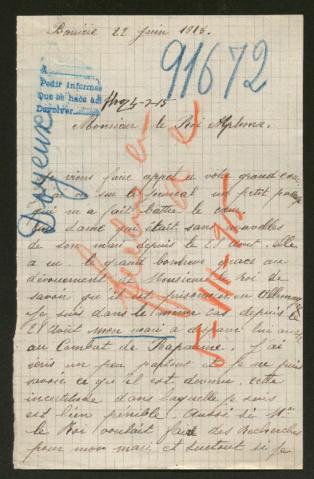 22 juin 1915.
91672
A
Pedir informes
Que se hace así
Devolver
Doyeux
Monsieur le Roi Alphonse.
Je viens faire appel a votre grand
sur le journal un petit
qui m a fait battre le cœur
dame qui était sans nouvelles
de son mari depuis le 28 août. elle
a eu le grand bonheur grace au
dévouement de Monsieur le Roi de
savoir qu'il est prisonnier en
Je suis dans le même cas depuis le
28 août mon mari a disparu lui aussi
au Combat de Bapaume. J ai
écris un peu partout et je ne puis
savoir ce qu'il est devenu, cette
incertitude dans laquelle je suis
est bien pénible. Aussi si Mr
le Roi voulait faire des recherches
pour mon mari et surtout si je